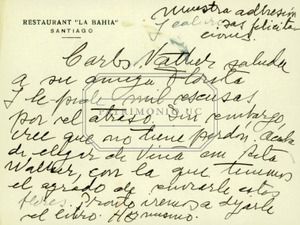 RESTAURANT "LA BAHIA"
SANTIAGO
nuestra adhesión
y calurosas felicitaciones.
Carlos Vattier saluda
a su amiga
y le pide mil excusas
por el atraso. Sin embargo,
cree que no tiene perdón. Acaba
de llegar de Viña con
Walter, con la que tenemos
el agrado de enviarle estas
flores. Pronto iremos a dejarle
el libro.